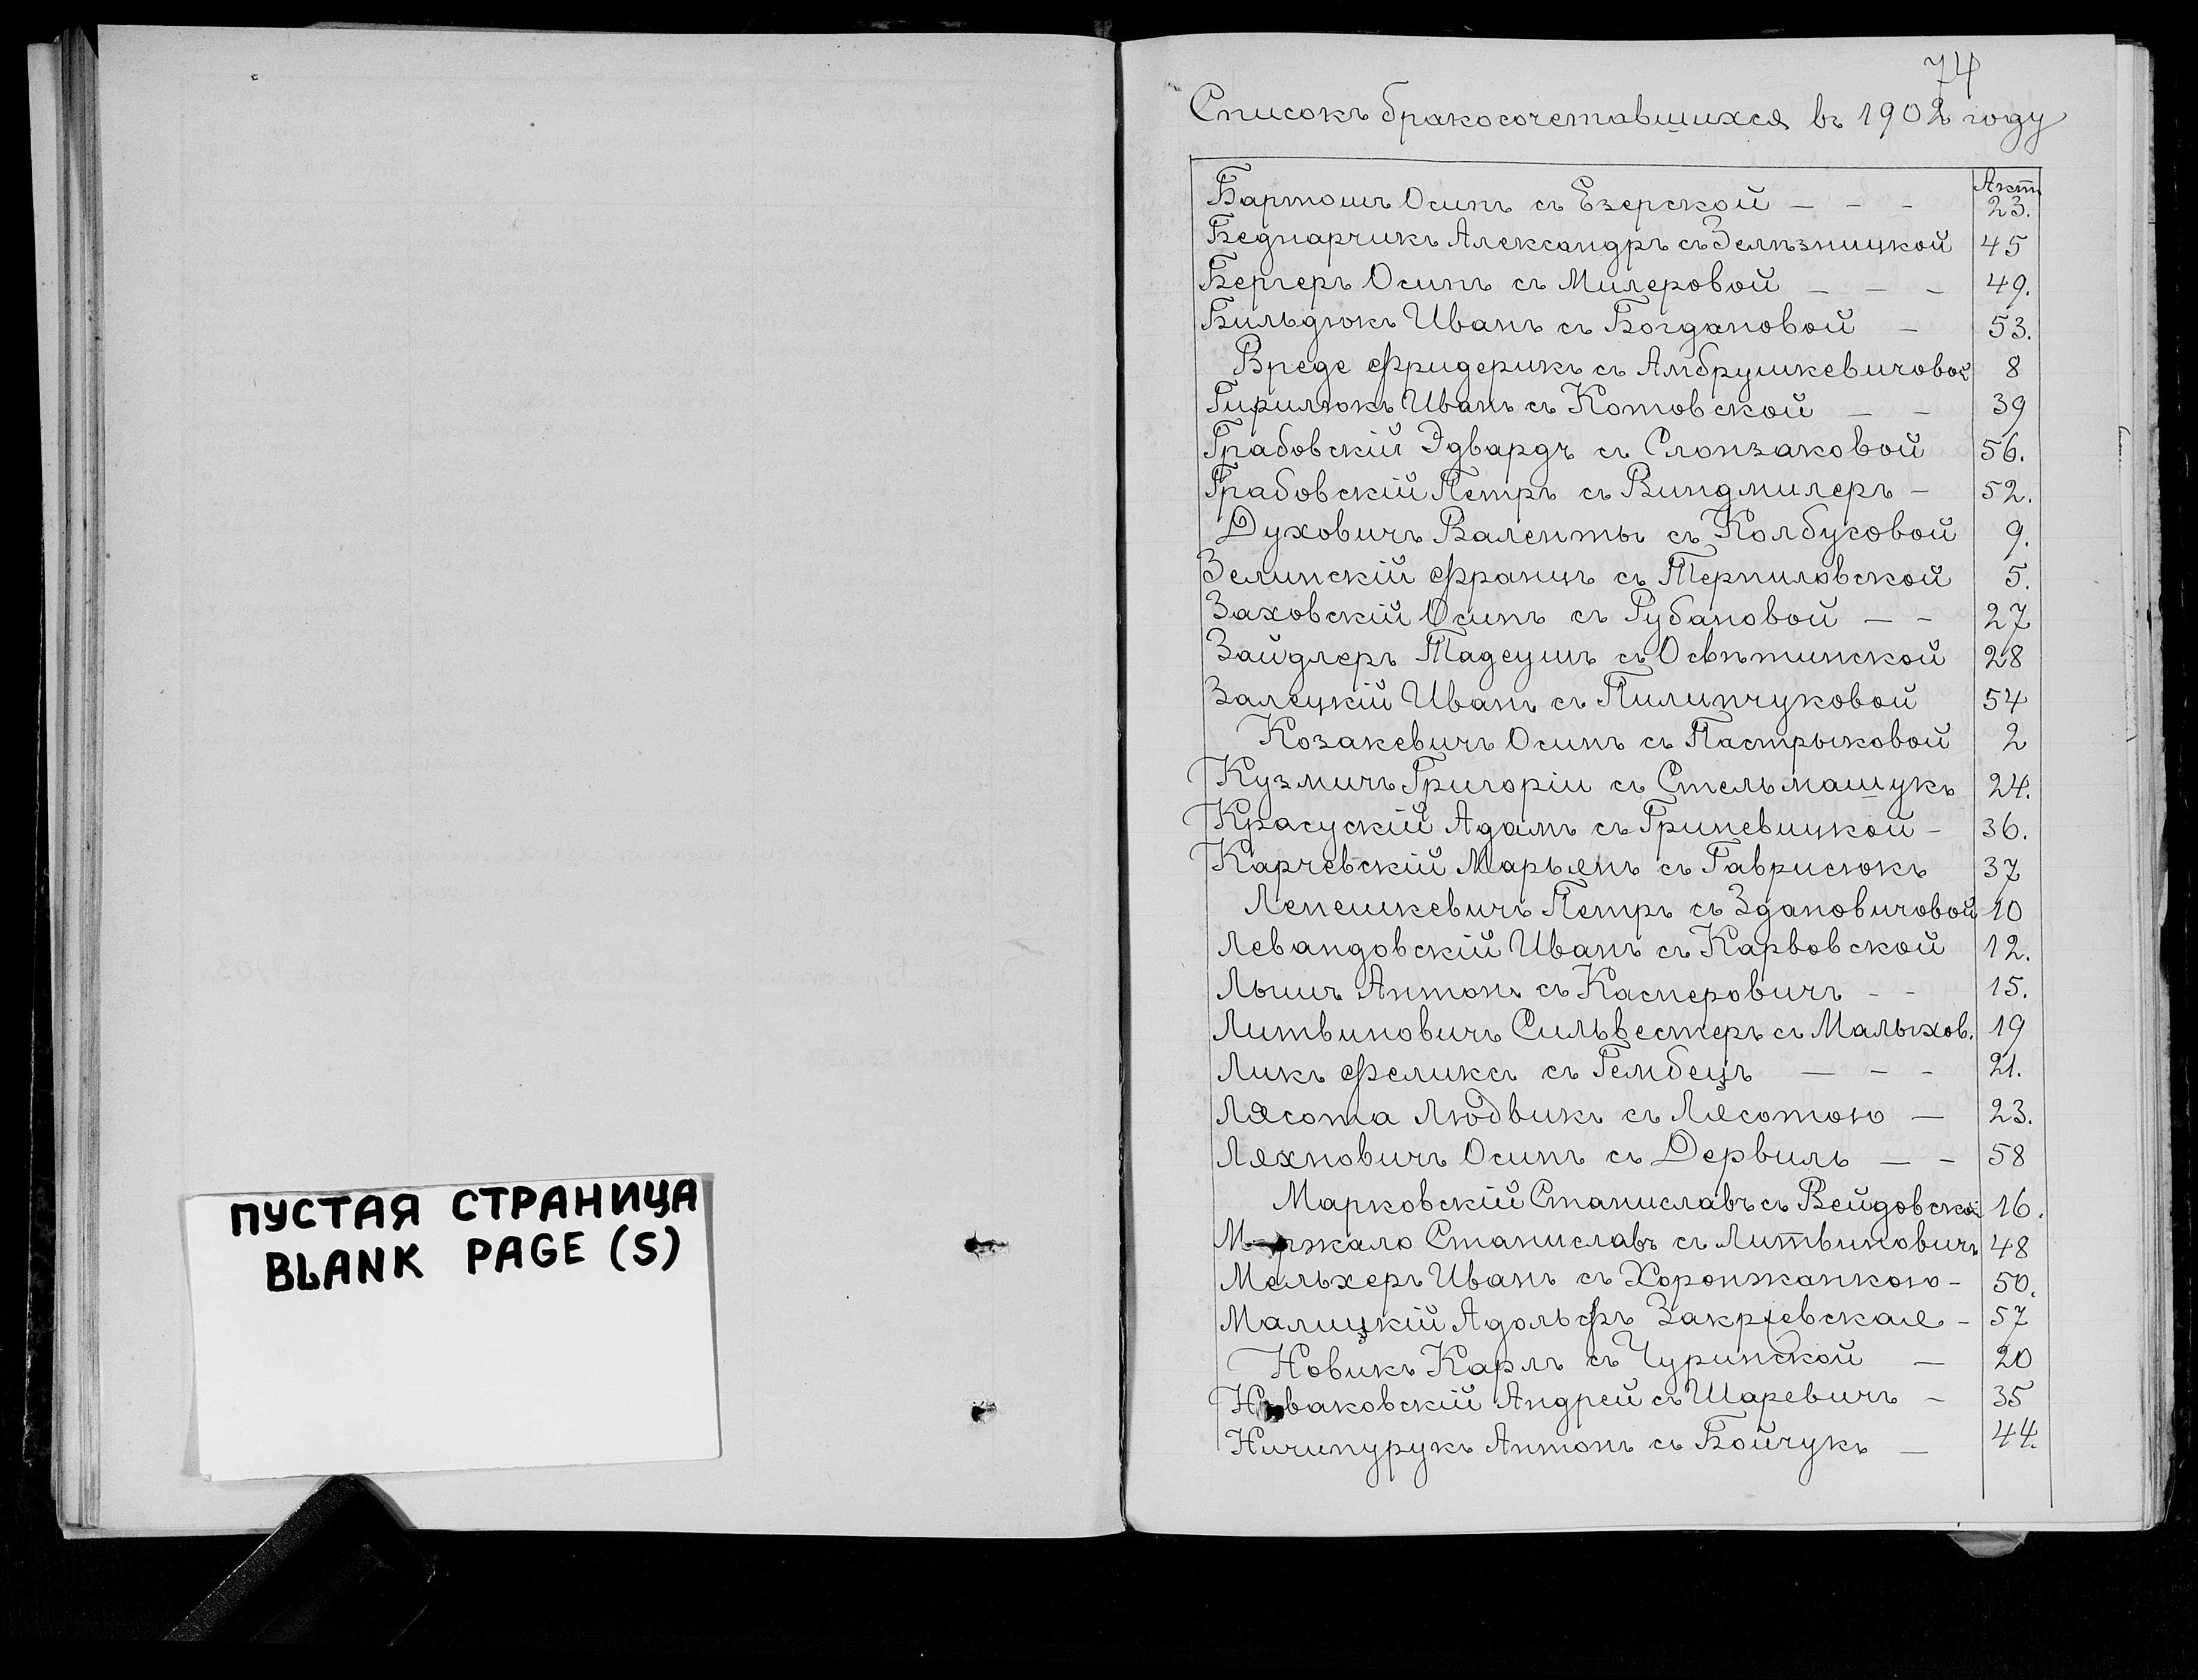 ПУСТАЯ СТРАНИЦА
BLANK PAGE (S)
74
Списокъ бракосочетавшихся въ 1902 году
Актъ
Бартошъ Осипъ съ Езерской — — — 23.
Беднарчикъ Александръ съ Зелѣзницкой 45
Бергеръ Осипъ съ Милеровой — — — 49.
Бильдюкъ Иванъ съ Богдановой — 53.
Вреде Фридерикъ съ Амбрушкевичовой 8
Гирилюкъ Иванъ съ Котовской — — 39
Грабовскій Эдвардъ съ Слонзаковой 56.
Грабовскій Петръ съ Виндмилеръ — 52.
Духовичъ Валенты съ Колбусовой 9.
Зелинскій Францъ съ Терпиловской 5.
Заховскій Осипъ съ Рубановой — — 27
Зайдлеръ Тадеушъ съ Освѣтинской 28
Залецкій Иванъ съ Пилипчуковой 54
Козакевичъ Осипъ съ Пастрыковой 2
Кузмичъ Григорій съ Стельмащукъ 24.
Красускій Адамъ съ Гриневицкой — 36.
Карчевскій Марьянъ съ Гаврисюкъ 37
Лепешкевичъ Петръ съ Здановичовой 10
Левандовскій Иванъ съ Карвовской 12.
Лышъ Антонъ съ Касперовичъ — — 15.
Литвиновичъ Сильвестеръ съ Малыхов. 19
Ликъ Феликсъ съ Гембецъ — — — 21.
Лясота Людвикъ съ Лясотою — 23.
Ляхновичъ Осипъ съ Дервиль — — 58
Марковскій Станиславъ съ Вейдовской 16.
Станиславъ съ Литвиновичъ 48
Мельхеръ Иванъ съ Хоронжанкою — 50.
Малицкій Адольфъ Закржевская — 57
Новикъ Карлъ съ Чуринской — 20
Новаковскій Андрей съ Шаревичъ — 35
Ничипурукъ Антонъ съ Бойчукъ — 44.